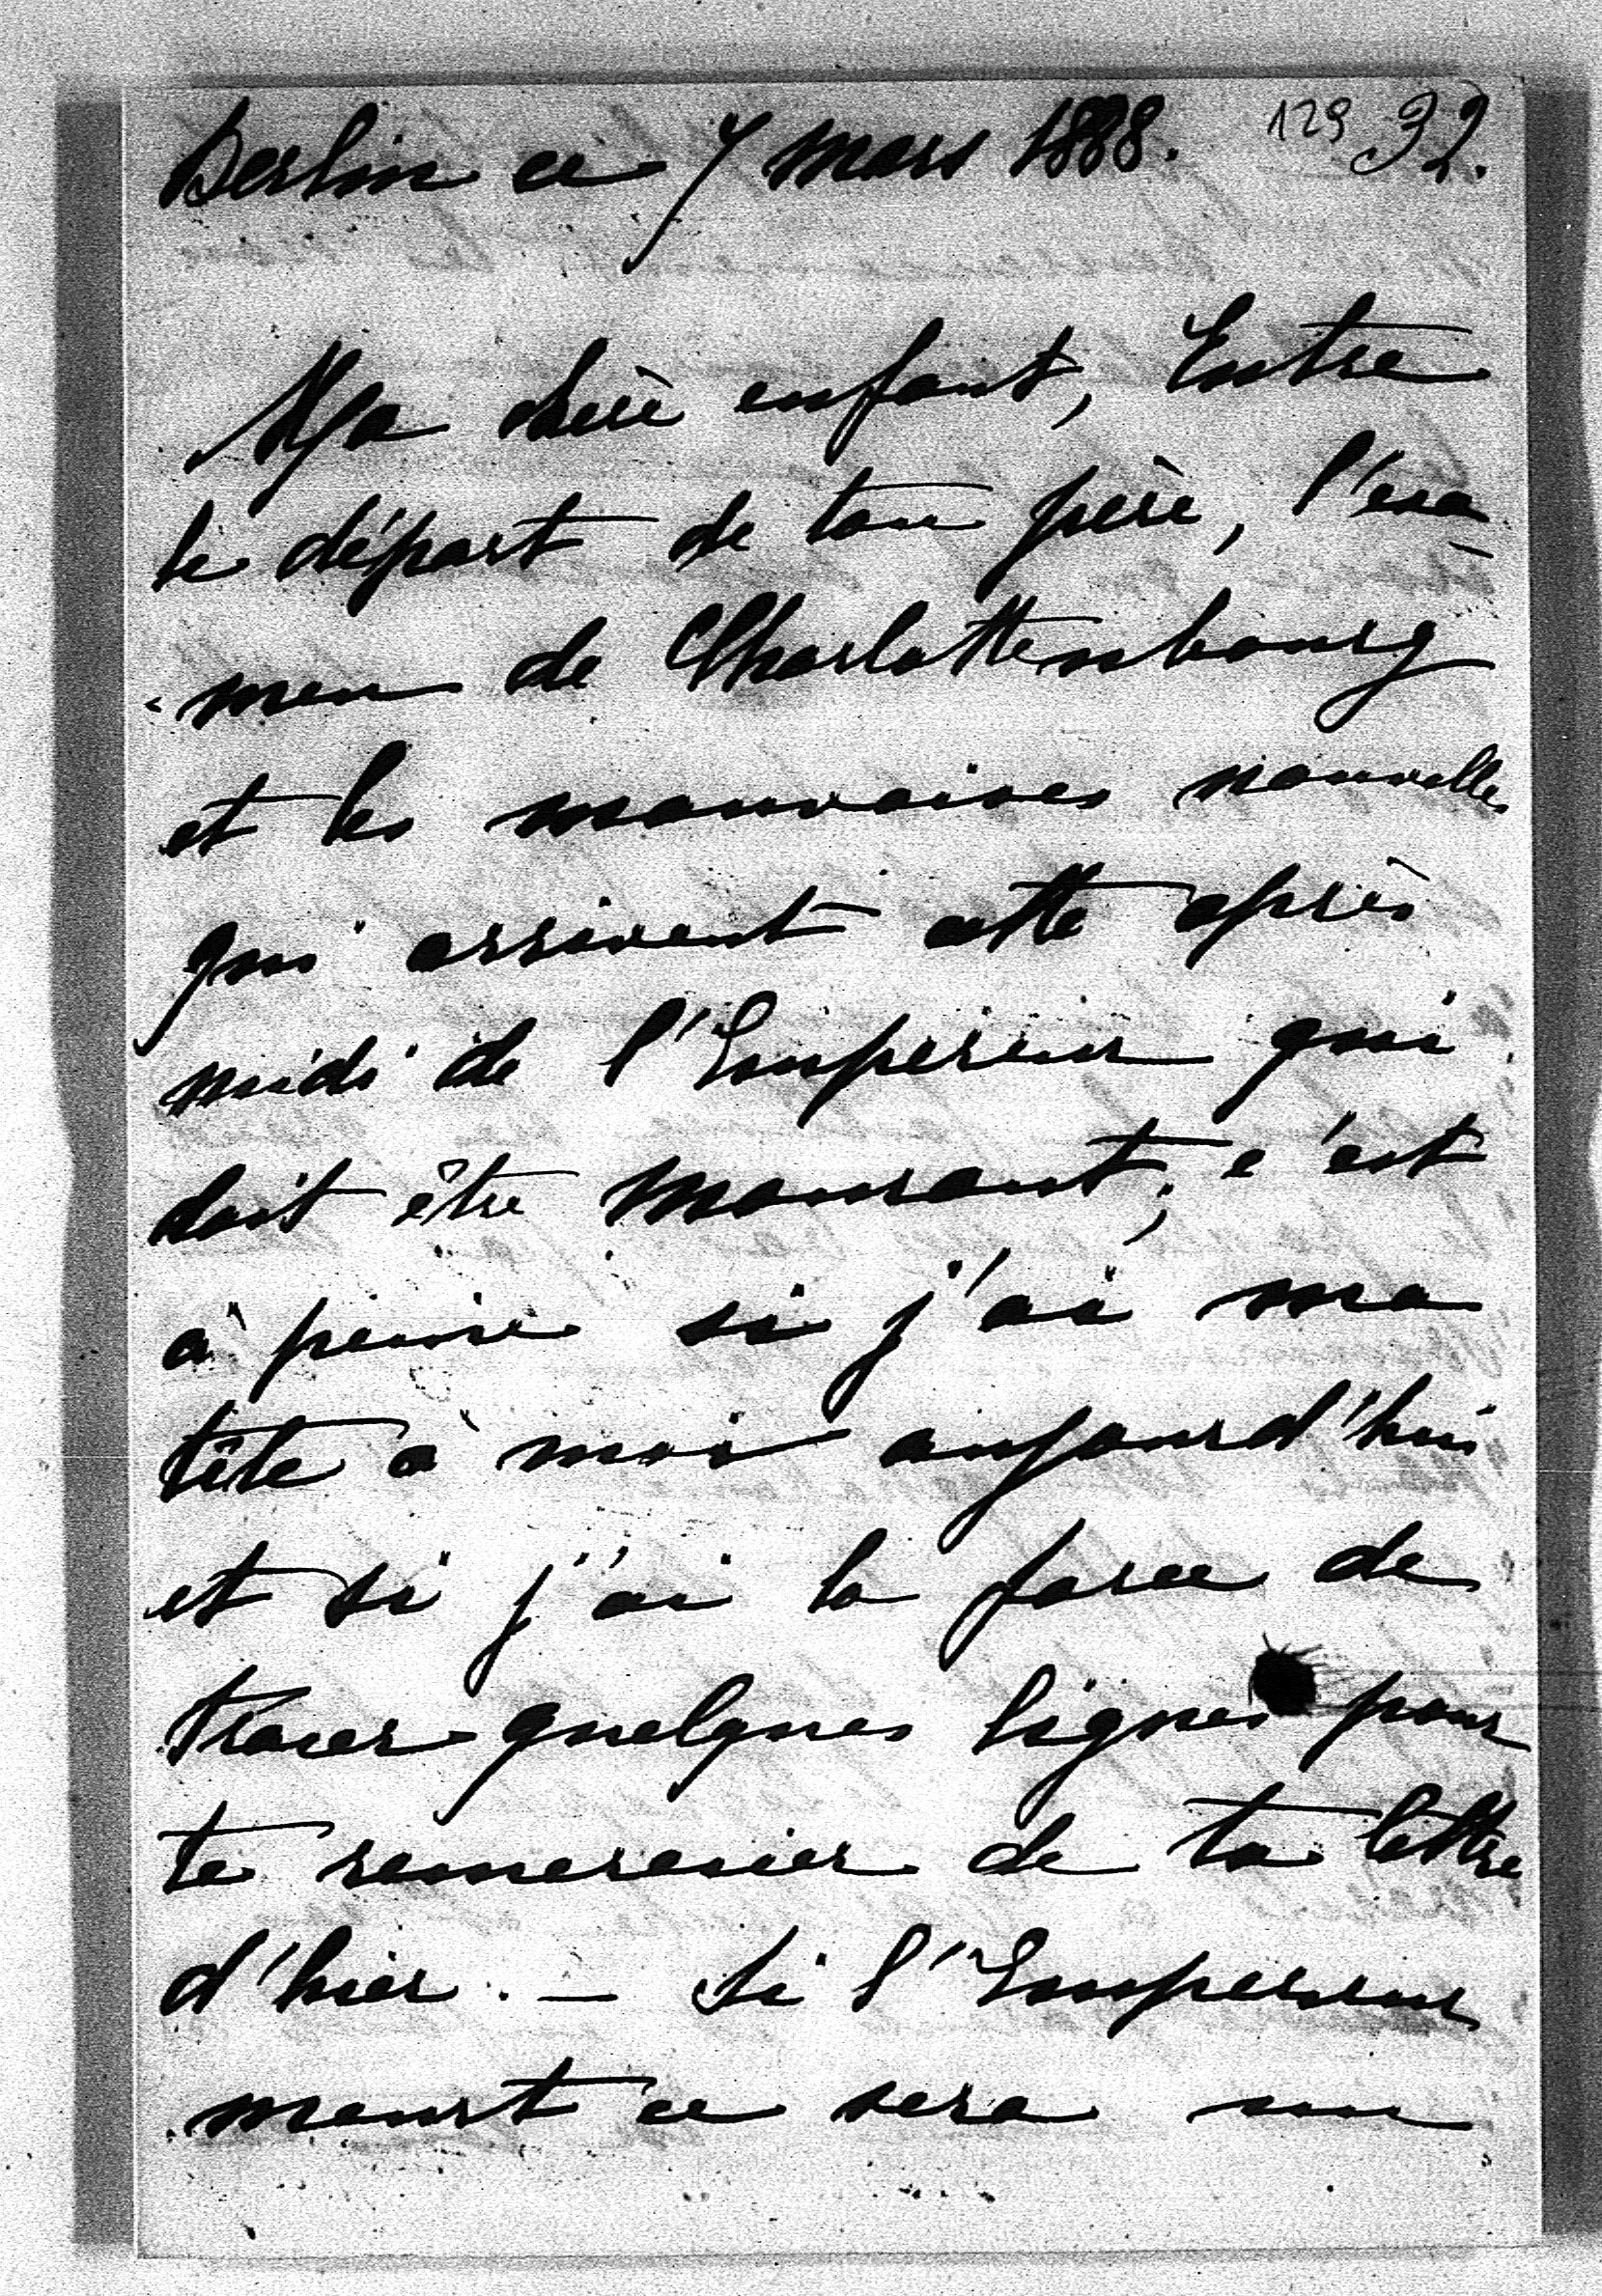 Berlin ce 7 mars 1888. 129 32.
Ma chère enfant, Entre
le départ de ton père, l'exa-
-men de Charlottenbourg
et les mauvaises nouvelles
qui arrivent cette après
midi de l'Empereur qui
doit être mourant, c'est
à peine si j'ai ma
tête à moi aujourd'hui
et si j'ai la force de
tracer quelques lignes pour
te remercier de ta lettre
d'hier. — Si l'Empereur
meurt ce sera un